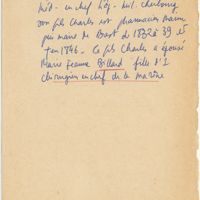 Méd. en chef hôp. mil. Cherbourg
son fils Charles est pharmacien marine
puis maire de Brest de 1832 à 39 et
en 1846. Ce fils Charles a épousé
Marie Jeanne Billard fille d'1
chirurgien en chef de la marine